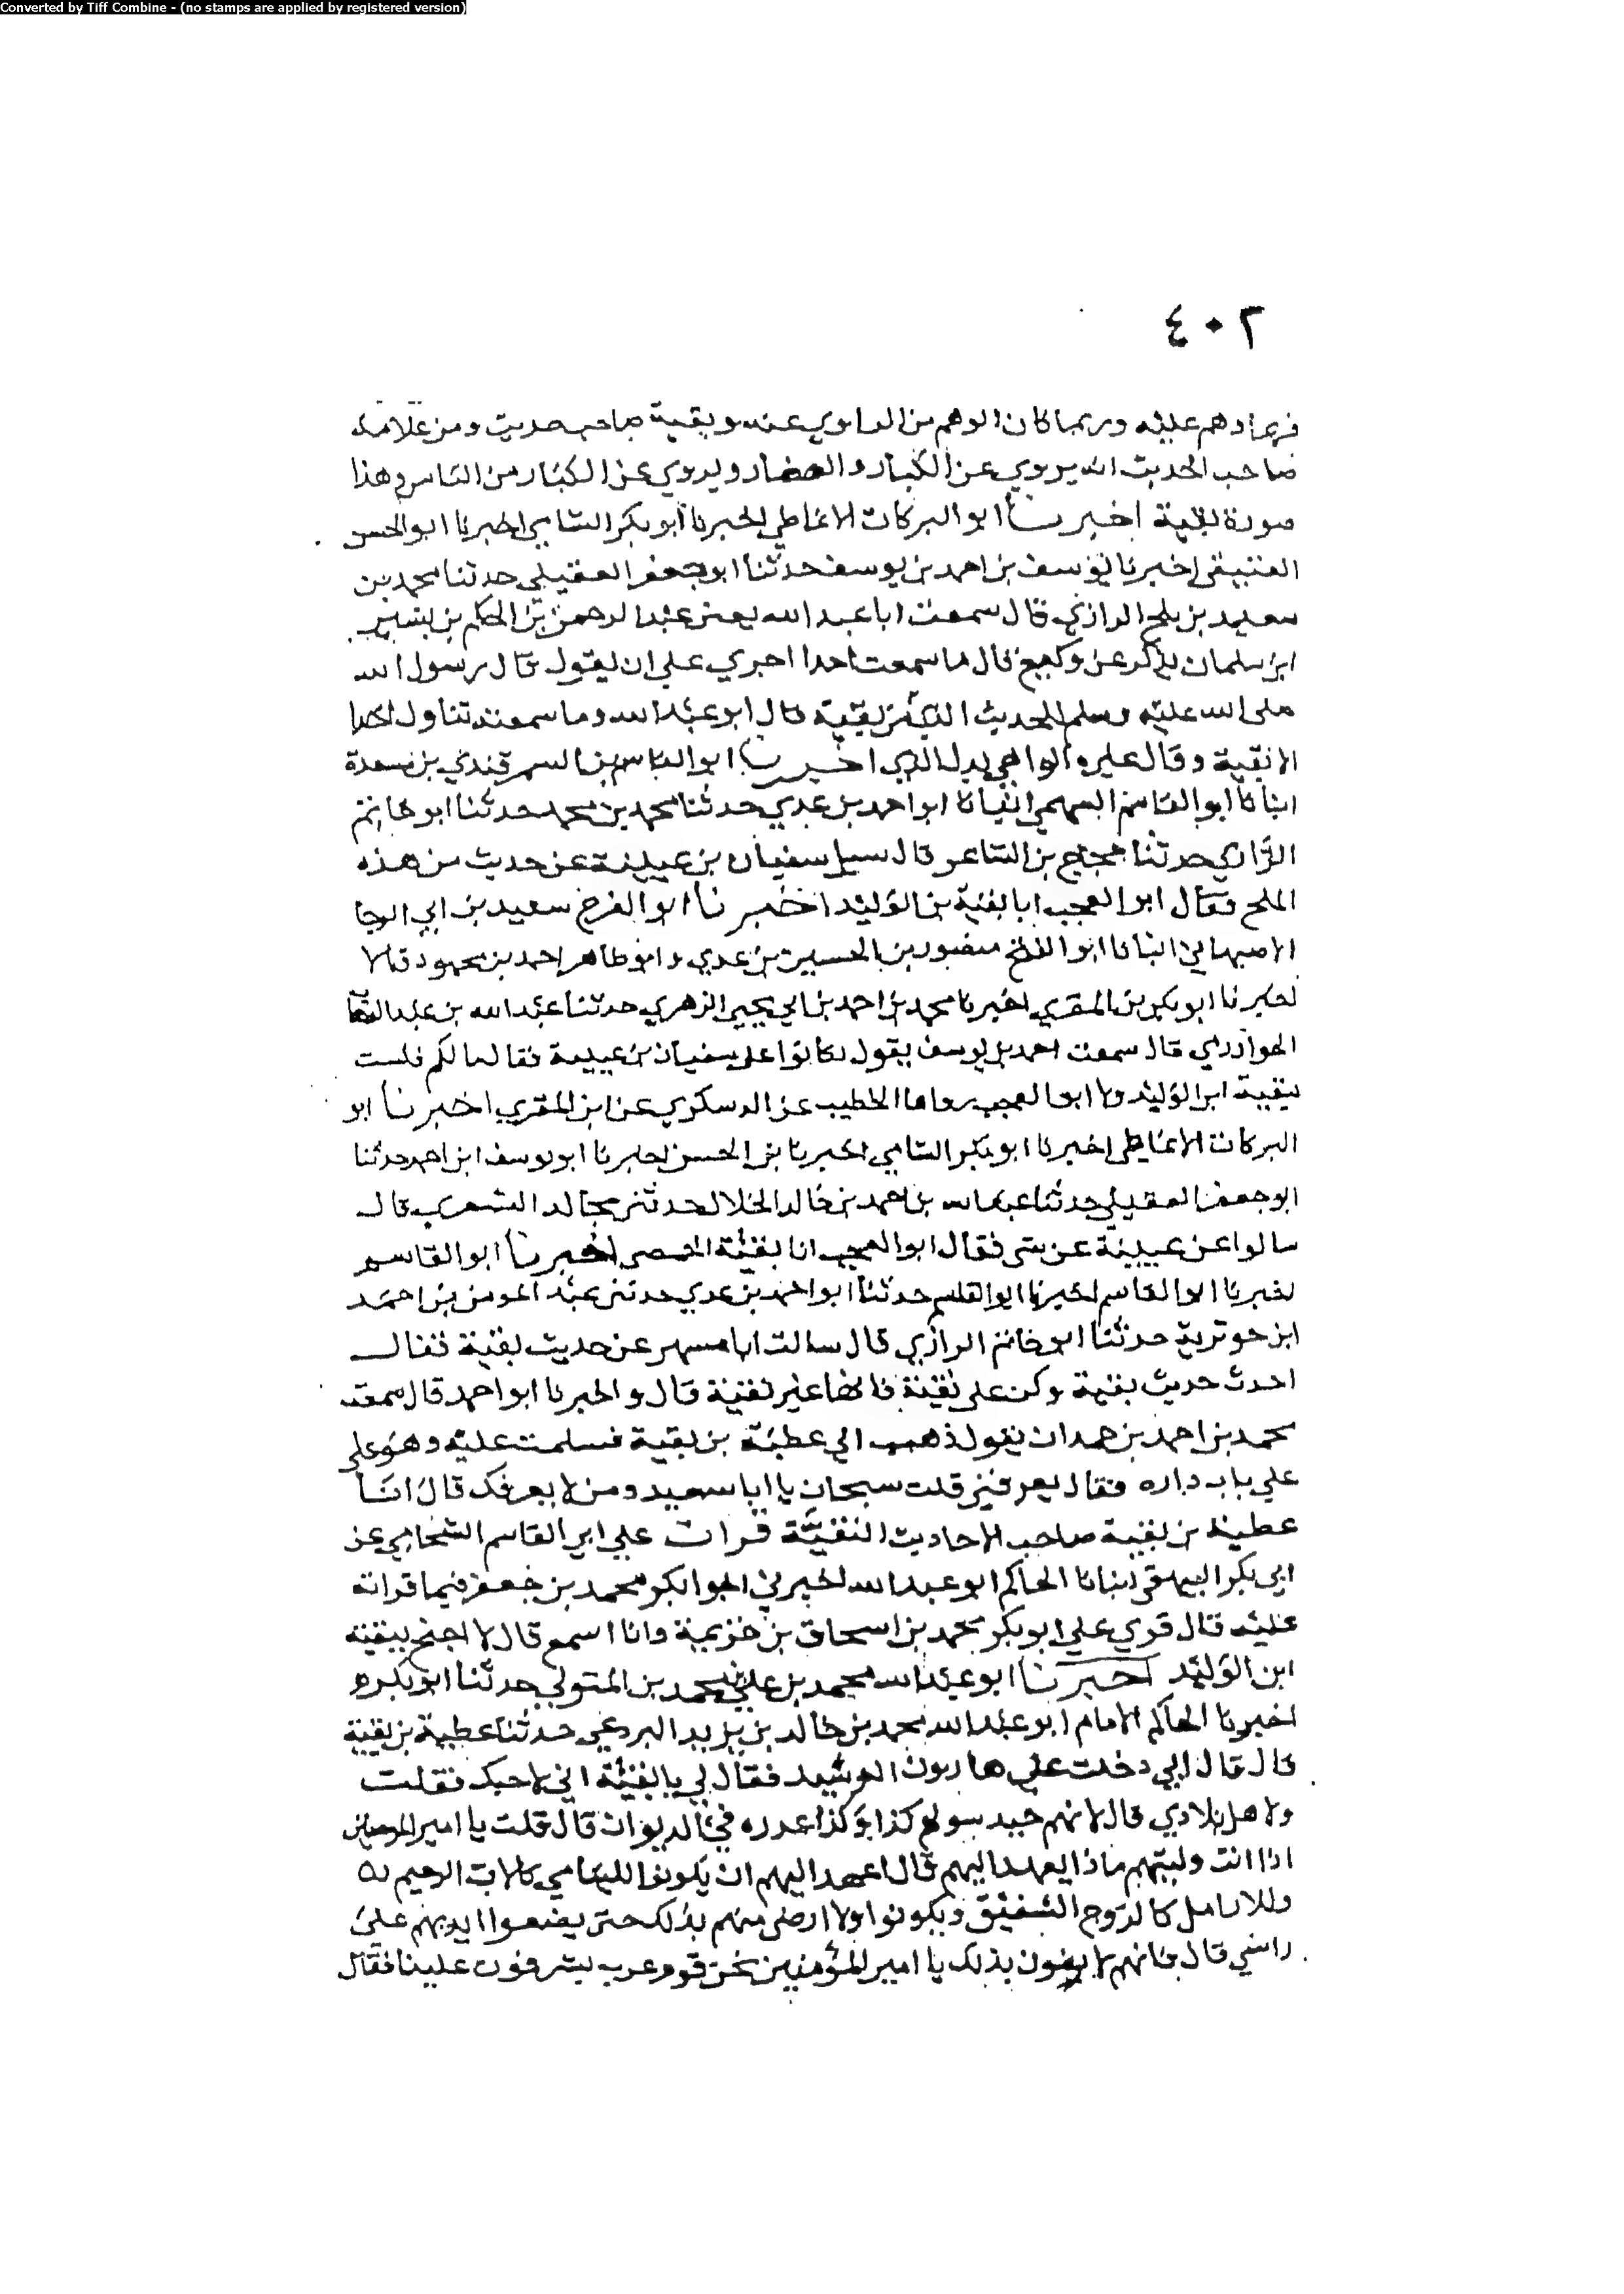 Converted by Tiff Combine - (no stamps are applied by registered version)
٤٠٢
فربما وهم عليه وربما كان الوهم من الراوي عنه وبقية صاحب حديث ومن علامة
صاحب الحديث انه يروي عن الكبار والصغار ويروي عن الكبار من الناس وهذا
صورة بقية اخبرنا ابو البركات الانماطي اخبرنا ابو بكر الشامي اخبرنا ابو الحسن
العتيقي اخبرنا يوسف بن احمد بن يوسف حدثنا ابو جعفر العقيلي حدثنا محمد بن
سعيد بن بلج الرازي قال سمعت ابا عبد الله يعني عبد الرحمن بن الحكم بن بشير
ابن سلمان يذكر عن وكيع قال ما سمعت احدا اجري علي ان يقول قال رسول الله
صلى الله عليه وسلم الحديث الذي من بقية قال ابو عبد الله وما سمعته تناول احدا
الا بقية وقال غيره الواهي بدل الذي اخبرنا ابو القاسم بن السمرقندي بن مسعدة
انبانا ابو القاسم السهمي انبانا ابو احمد بن عدي حدثنا محمد بن محمد حدثنا ابو حاتم
الرازي حدثنا حجاج بن الشاعر قال سيل سفيان بن عيينة عن حديث من هذه
الملح فقال ابو العجب ابا بقية بن الوليد اخبرنا ابو الفرج سعيد بن ابي الرجا
الاصبهاني انبانا ابو الفتح منصور بن الحسين بن عدي و ابو طاهر احمد بن محمود قالا
اخبرنا ابو بكر بن المقري اخبرنا محمد بن احمد بن ابي يحيى الزهري حدثنا عبد الله بن عبد
قال سمعت احمد بن يوسف يقول علي سفيان بن عيينة فقال مالكم فلست
ببقية ابن الوليد ولا ابو العجب رواها الخطيب عن الدسكري عن ابن المقري اخبرنا ابو
البركات الانماطي اخبرنا ابو بكر الشامي اخبرنا بن الحسن اخبرنا ابو يوسف ابن احمد حدثنا
ابو جعفر العقيلي حدثنا عبد الله بن احمد بن خالد الخلال حدثني مجالد الشعري قال
سالوا عن عيينة عن شي فقال ابو العجب انا بقية اخبرنا ابو القاسم
اخبرنا ابو القاسم اخبرنا ابو القاسم حدثنا ابو احمد بن عدي حدثني عبد المومن بن احمد
ابن حوثرية حدثنا ابو حاتم الرازي قال سالت ابا مسهر عن حديث بقية فقال
احدث حديث بقية وكن على تقية فانها غير نقية قال و اخبرنا ابو احمد قال سمعت
محمد بن احمد بن حمدان يقول ذهبت الي عطية بن بقية فسلمت عليه وهو على
علي باب داره فقال يعرفني قلت سبحان يا ابا سعيد ومن لا يعرفك قال انا
عطية بن بقية صاحب الاحاديث النقية قرات علي ابي القاسم الشحامي عن
ابي بكر البيهقي انبانا الحاكم ابو عبد الله اخبرني ابو ابكر محمد بن جعفر فيما قراته
عليه قال قري علي ابو بكر محمد بن اسحاق بن خزيمة وانا اسمع قال لا احتج ببقية
ابن الوليد اخبرنا ابو عبد الله محمد بن علي بن محمد بن المتولي حدثنا ابو بكره
اخبرنا الحاكم الامام ابو عبد الله محمد بن خالد بن يزيد البردعي حدثنا عطية بن بقية
قال قال ابي دخلت علي هارون الرشيد فقال لي يا بقية اني لاحبك فقلت
ولاهل بلادي قال لا انهم جند سو لهم كذا وكذا غدره في الديوان قال قلت يا امير المومنين
اذا انت وليتهم ماذا يعهد اليهم قال اعهد اليهم ان يكونوا لليتامي كالاب الرحيم
وللارامل كالزوج الشفيق ويكونوا ولا ارضى منهم بذلك حتى يضعوا ايديهم على
راسي قال فانهم لا يفون بذلك يا امير المؤمنين نحن قوم عرب يشرفون علينا فقال